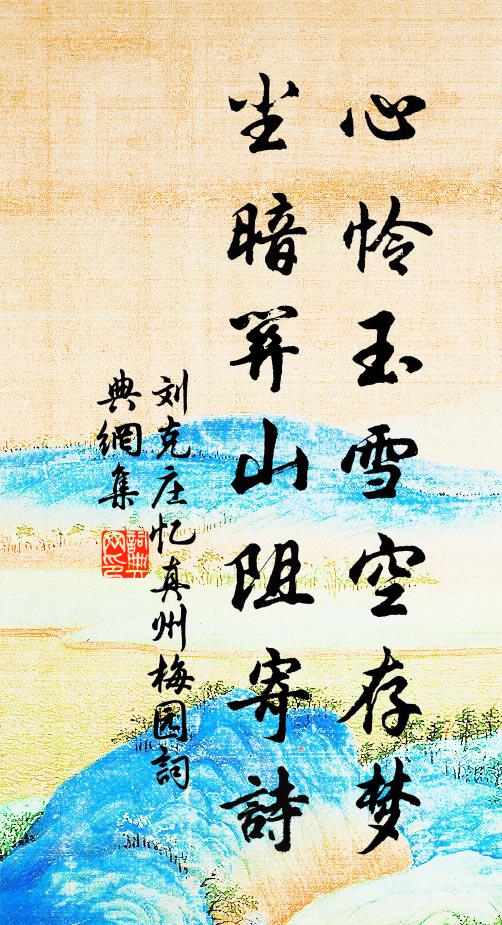 心怜玉雪空存梦
尘暗关山阻寄詩
刘克庄忆真州梅园詞
典網集
詞典
网印